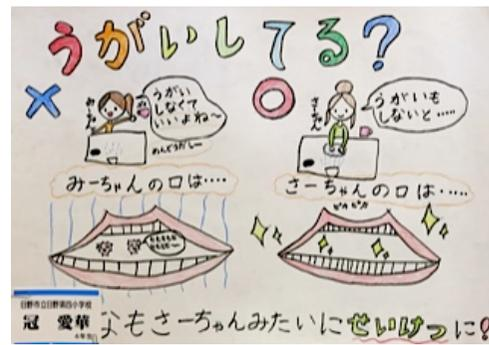 うがいしてる?
みーちゃん
うがい
しなくて
いいよね〜
めんどうだしー
みーちゃんの口は‥‥
さーちゃん
うがいも
しないと‥‥‥
さーちゃんの口は‥‥‥
ピカピカ
日野市立日野第四小学校
冠 愛華
なもさーちゃんみたいにせいけつに!